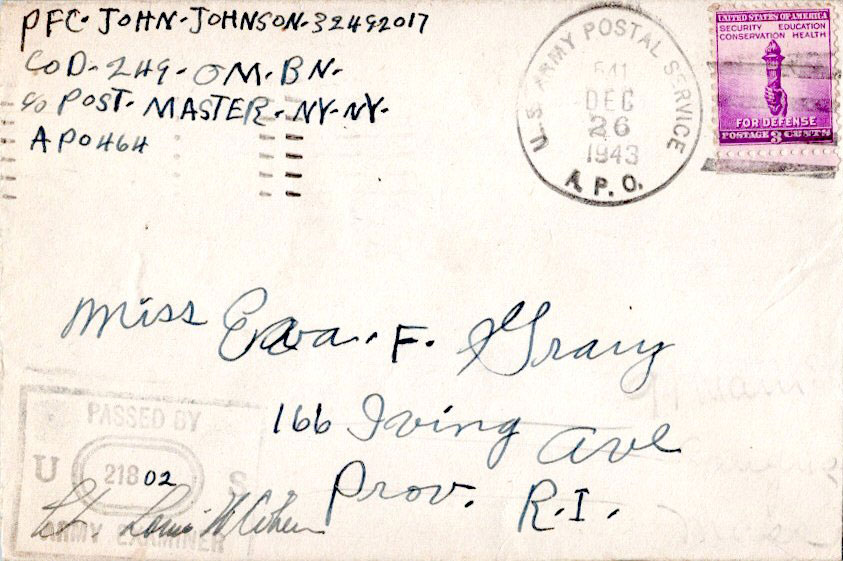 PFC. JOHN. JOHNSON. 32492017
CO D. 249. QM. BN.
c/o POST. MASTER. NY. NY.
APO 464
U.S. ARMY POSTAL SERVICE
541
DEC
26
1943
A.P.O.
UNITED STATES OF AMERICA
SECURITY EDUCATION
CONSERVATION HEALTH
FOR DEFENSE
POSTAGE 3 CENTS
Miss Eva. F.
166 Irving Ave
Prov. R.I.
PASSED BY
U 21802 S
ARMY EXAMINER
Lt.